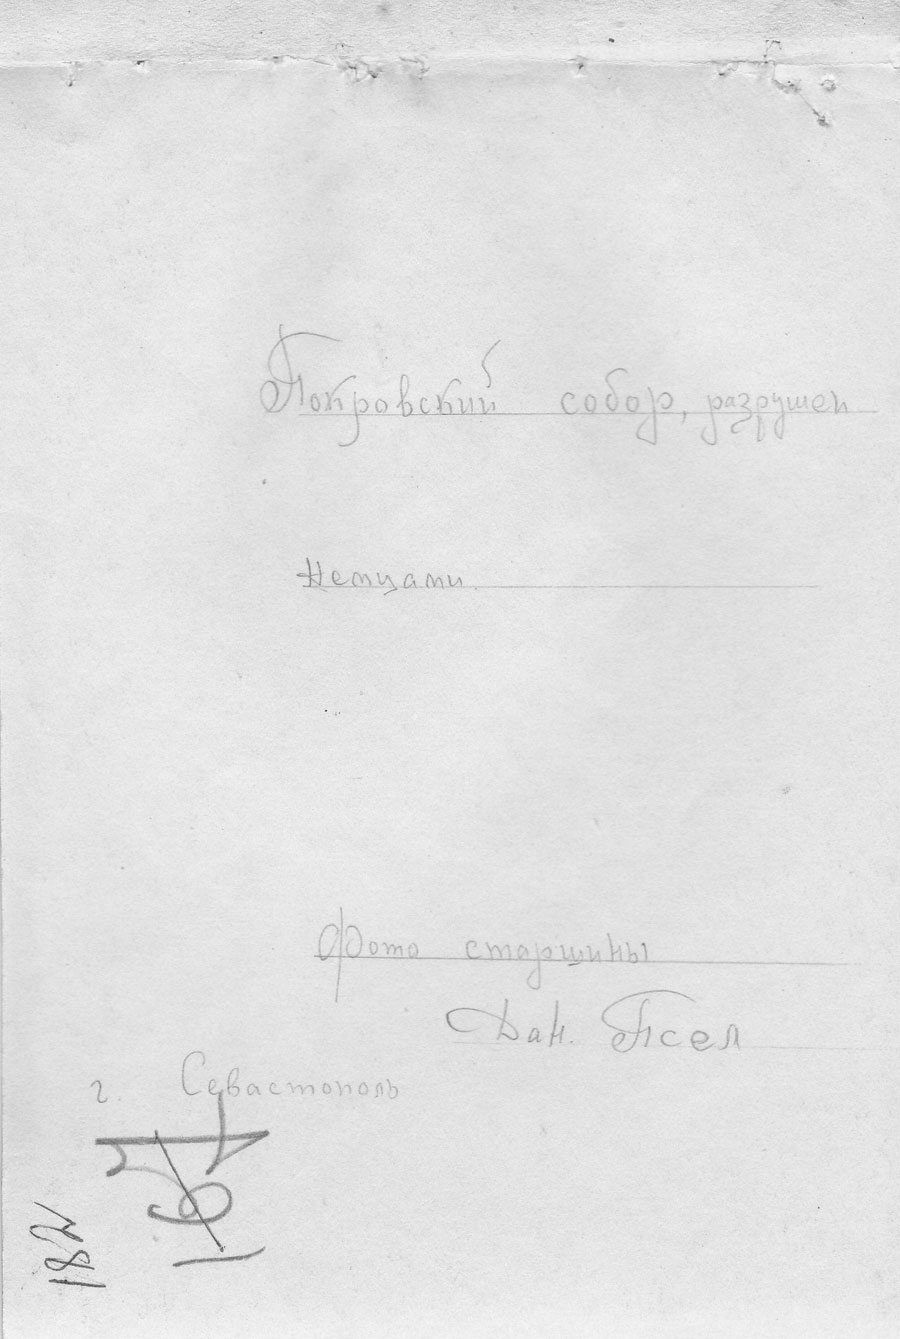 Покровский собор, разрушен
немцами.
Фото старшины
Дан. Псел
г. Севастополь
182